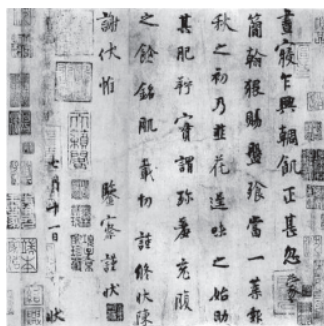 晝寢乍興輖飢正甚忽蒙
簡翰猥賜盤飧當一葉報
秋之初乃韭花逞味之始助
其肥羜實謂珎羞充腹
之餘銘肌載切謹修狀陳
謝伏惟 鑒察謹狀
七月十一日 狀